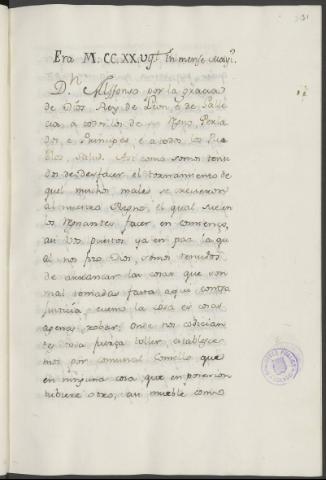 Era M.CC.XX.VII. In mense Maij.
Dn. Alffonso por la gracia
de Dios Rey de Leon, è de Gali
cia, a todos los de mi Regno, Perla
dos, e Principes, e a todos los Pue
blos, Salud. Así como somos tenu
dos desfacer, el tornamiento de
que muchos males se
al nuestro Regno, el qual suelen
los facer en comenzo,
puestos ya en paz la qu
al nos pro Dios, somos tenudos
de arrancar las cosas que son
mal tomadas fasta aqui contra
justicia, cuemo la cosa es cosas
agenas robar; onde nos codician
tes toda fuerza toller establesce
mos por comunal Concilio que
en ninguna cosa que en posesion
tubiere otro, au mueble como